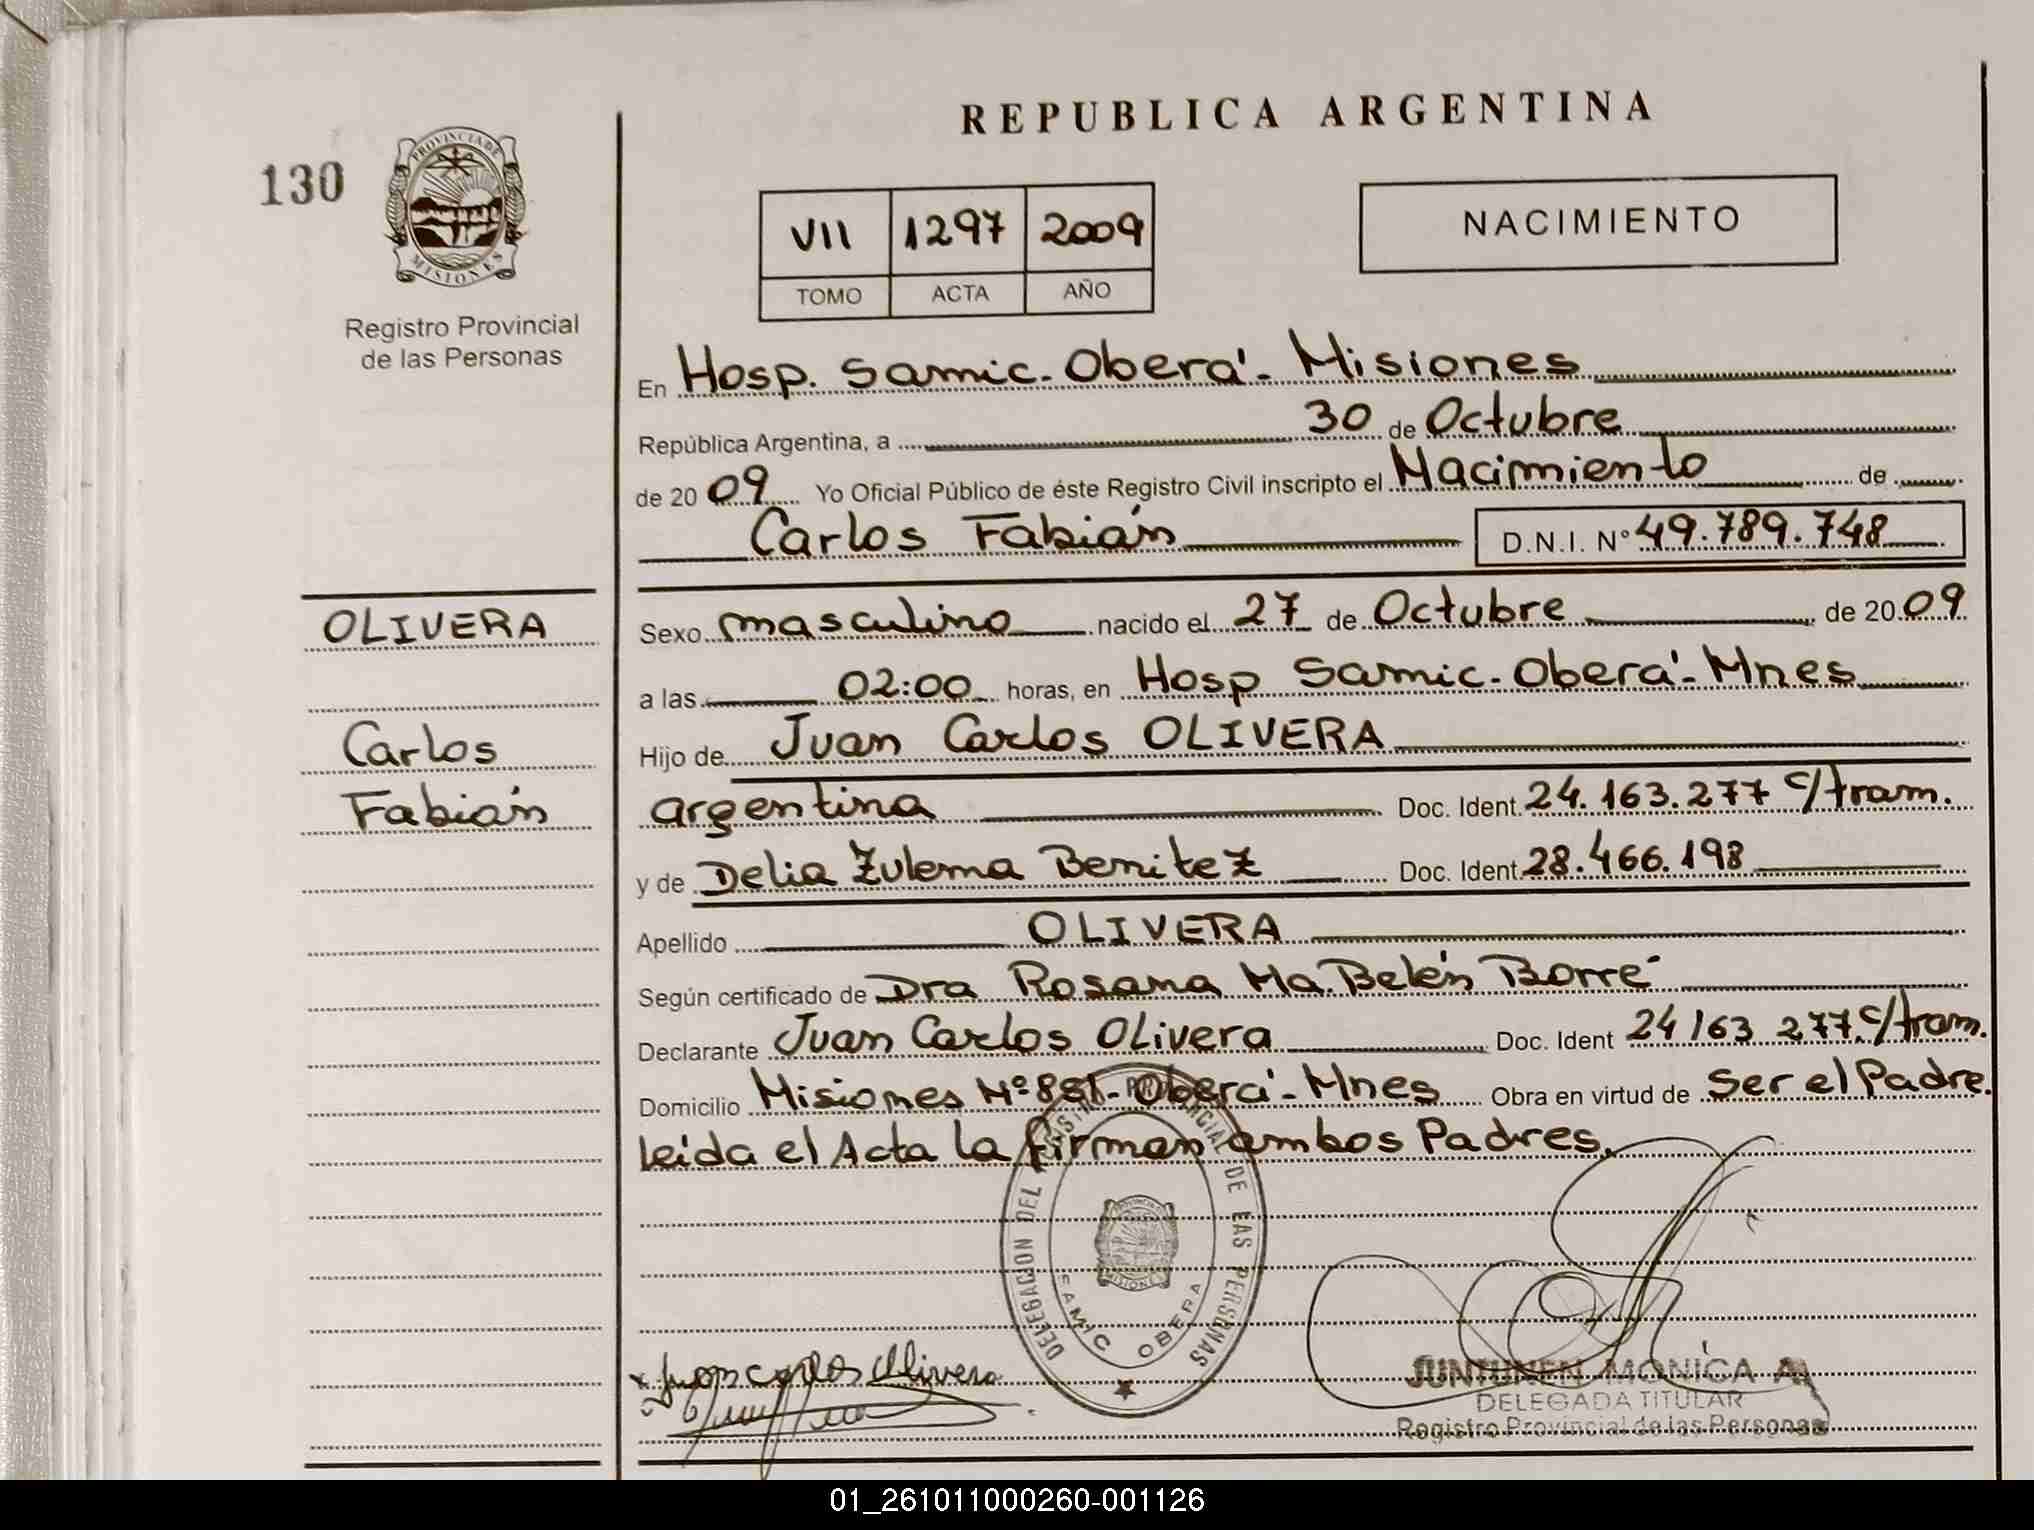 REPUBLICA ARGENTINA
130
PROVINCIA DE
MISIONES
Registro Provincial
de las Personas
VII 1297 2009
TOMO ACTA AÑO
NACIMIENTO
En Hosp. Samic. Oberá - Misiones
República Argentina, a 30 de Octubre
de 2009 Yo Oficial Público de éste Registro Civil inscripto el Nacimiento de
Carlos Fabián D.N.I. Nº 49.789.748
OLIVERA
Carlos
Fabián
Sexo masculino nacido el 27 de Octubre de 2009
a las 02:00 horas, en Hosp Samic. Oberá - Mnes
Hijo de Juan Carlos OLIVERA
argentina Doc. Ident. 24.163.277 c/tram.
y de Delia Zulema Benitez Doc. Ident. 28.466.198
Apellido OLIVERA
Según certificado de Dra Rosana Ma. Belén Borré
Declarante Juan Carlos Olivera Doc. Ident 24 163 277 c/tram.
Domicilio Misiones Nº 881 - Oberá - Mnes Obra en virtud de Ser el Padre.
leída el Acta la firman ambos Padres.
DELEGACION DEL PROVINCIAL DE LAS PERSONAS
SAMIC OBERA
MISIONES
Juan carlos Olivera
JUNTUNEN MONICA A.
DELEGADA TITULAR
Registro Provincial de las Personas
01_261011000260-001126